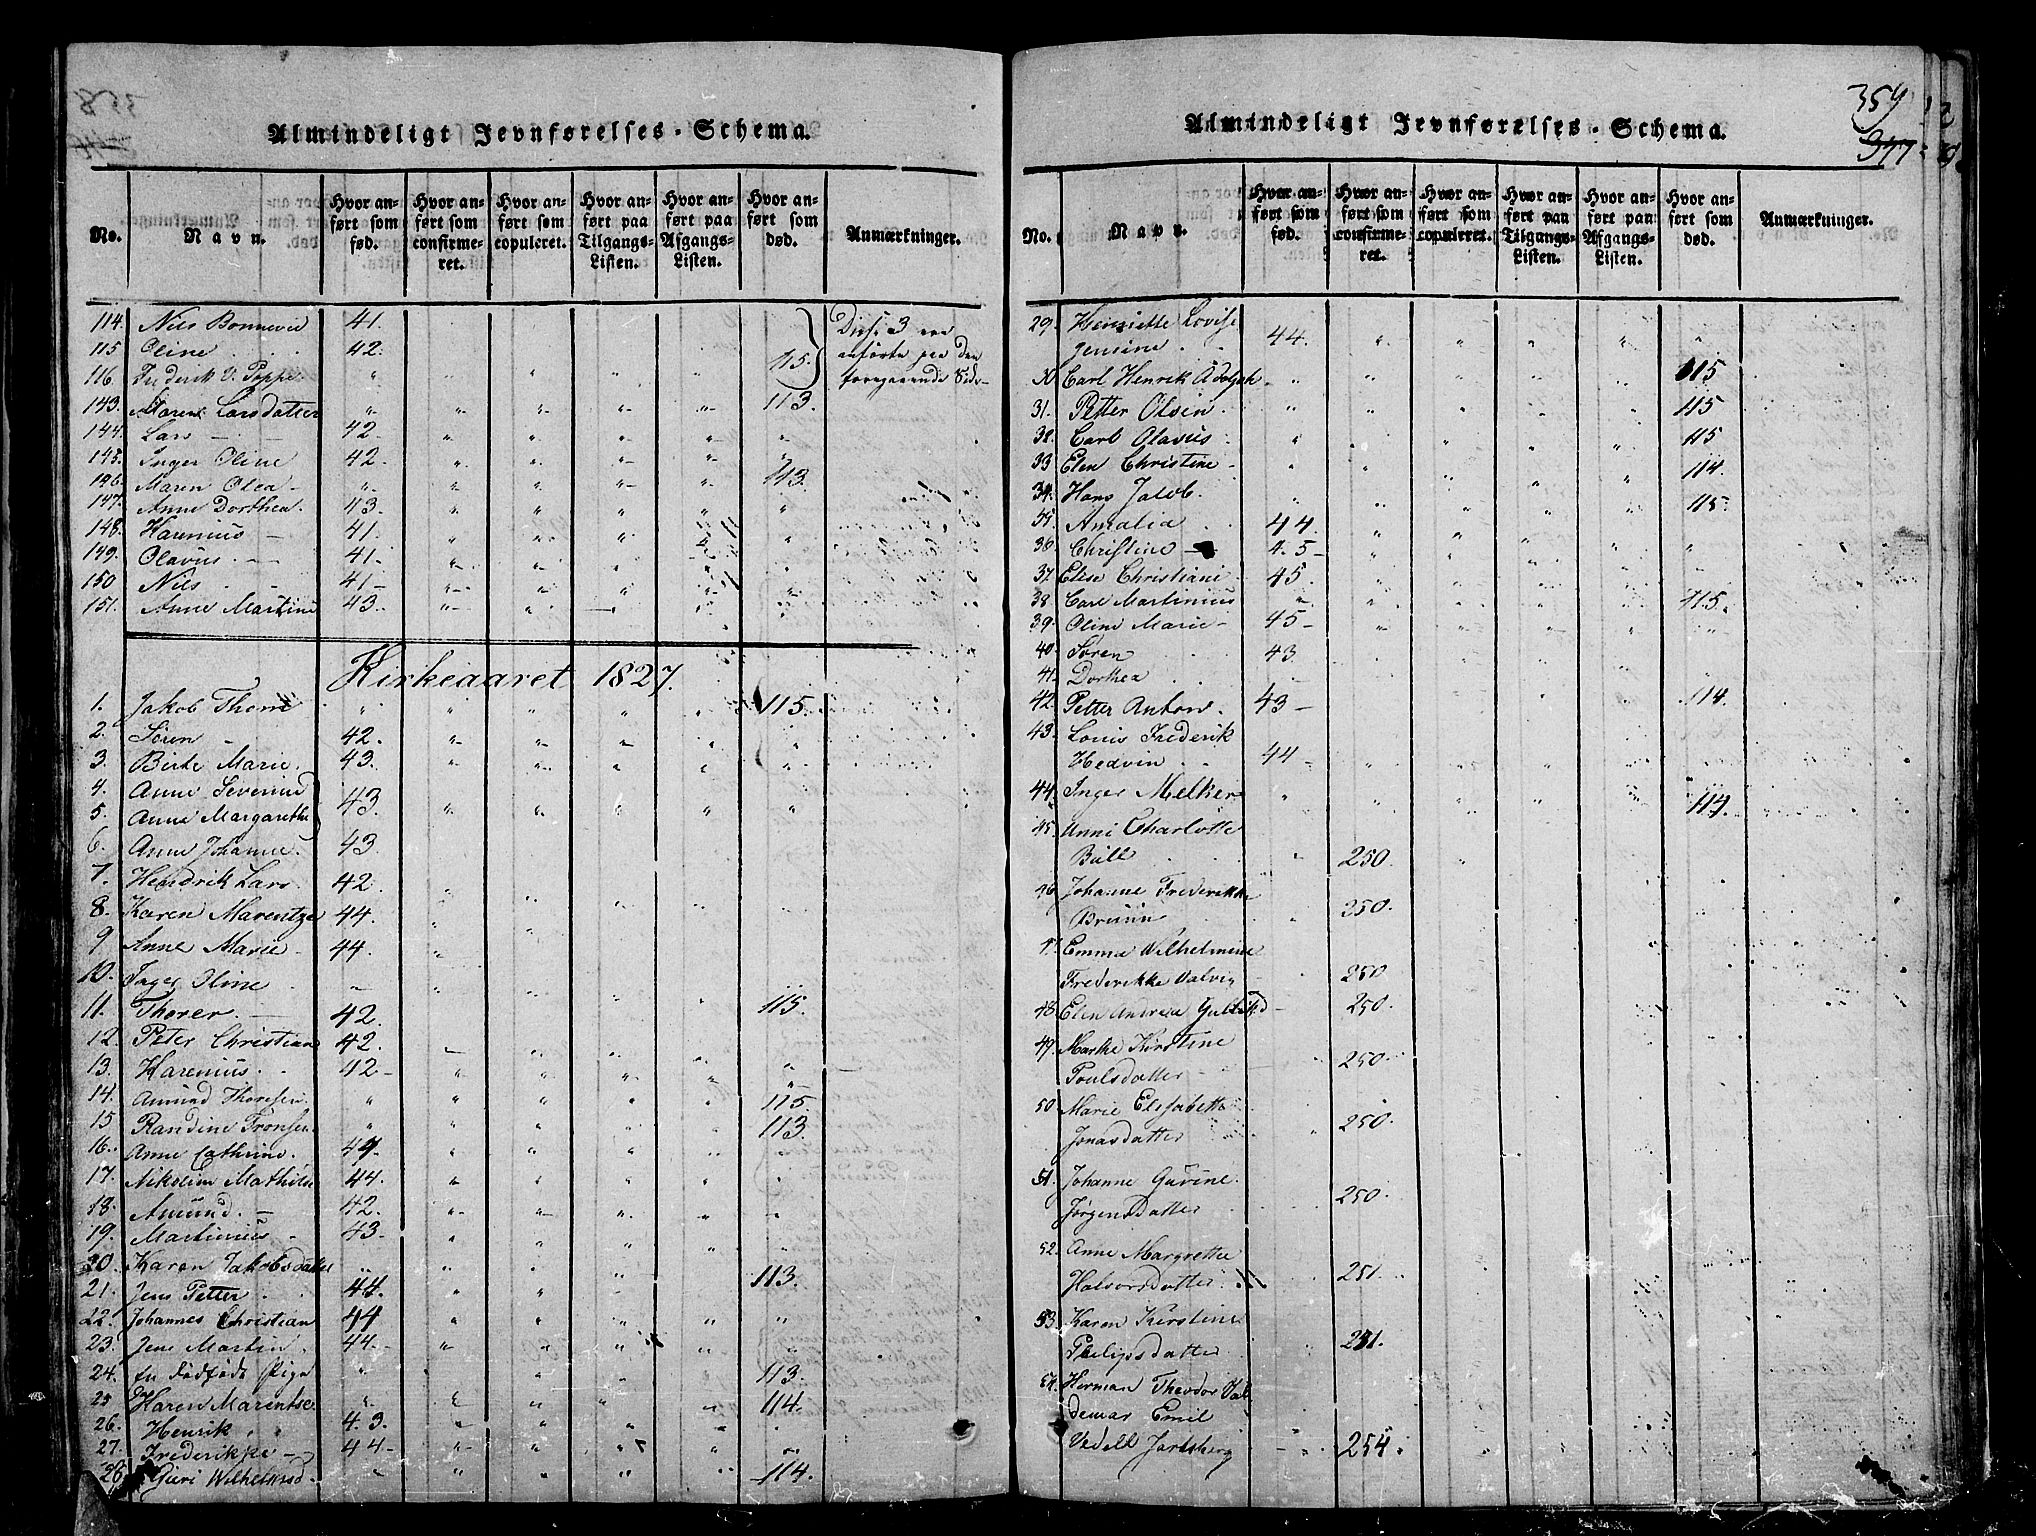 Almindeligt Jevnførelses-Schema.
No. Navn. Hvor anført som fød. Hvor anført som confirmeret. Hvor anført som copuleret. Hvor anført paa Tilgangs-Listen. Hvor anført paa Afgangs-Listen. Hvor anført som død. Anmærkninger.
114. Nils Bonnevie 41.
115 Oline 42.
116. Frederik V. Poppe " 115.
143. Maren Larsdatter " 113.
144. Lars 42.
145. Inger Oline 42.
146. Maren Olea " 113.
147. Anne Dorthea. 43.
148. Hannius 41.
149. Olavus 41.
150 Nils 41
151. Anne Martine 43.
Kirkeaaret 1827.
1. Jakob Thom 115.
2. Søren 42.
3. Birte Marie. 43.
4. Anne Severine
5. Anne Margarethe 43.
6. Anne Johanne. 43.
7. Hendrik Lars 42.
8. Karen Marentze 44.
9 Anne Marie 44.
10. Inger Oline
11. Thorer 42. 115.
12. Peter Christian 42.
13. Karenius 42
14. Amund Thoresen " 115.
15 Randine Tronsen " 113.
16. Anne Cathrine. 44.
17. Nikoline Mathilde 44.
18. Amund. 42.
19. Martinius 43.
20. Karen Jakobsdatter 113.
21. Jens Petter 44.
22. Johannes Christian 44
23. Jens Martin. 44.
24. En dødfødt Pige " 113.
25 Karen Marentse " 114.
26. Henrik 43
27. Frederikke 44
28 Guri Wilhelmsd. " 114.
Almindeligt Jevnførelses-Schema.
359
347
No. Navn. Hvor anført som fød. Hvor anført som confirmeret. Hvor anført som copuleret. Hvor anført paa Tilgangs-Listen. Hvor anført paa Afgangs-Listen. Hvor anført som død. Anmærkninger.
29. Henriette Lovise
Jensine 44.
30 Carl Henrik Adolph 115
31. Petter Olsen 115
32. Carl Olavus 115
33 Elen Christine 114.
34. Hans Jakob 115.
35. Amalia 44.
36. Christine 45
37. Elise Christiane 45.
38. Carl Martinius 115.
39. Oline Marie 45
40. Søren 43
41. Dorthea
42. Petter Anton. 43 114.
43. Louis Frederik
Hedven 44
44. Inger Melker 114.
45. Anne Charlotte
Bull 250.
46 Johanne Frederikke
Bruun 250.
47. Emma Wilhelmine
Frederikke 250
48. Elen Andrea 250.
49. Marthe Kirstine
Poulsdatter 250.
50 Marie Elisabeth
Jonasdatter 250.
51. Johanne Gurine
Jørgensdatter 250.
52. Anne Margrethe
Halvorsdatter 251.
53. Karen Kirstine
Philipsdatter 251.
54. Herman Theodor Val
demar Emil
Vedell Jarlsberg 254.